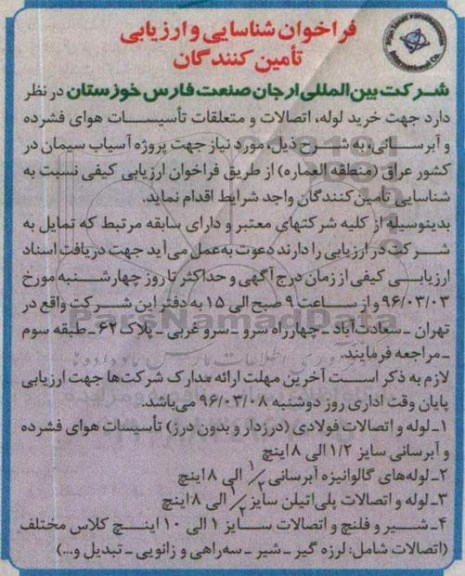 فراخوان شناسایی و ارزیابی
تأمین کنندگان
شرکت بین المللی ارجان صنعت فارس خوزستان در نظر
دارد جهت خرید لوله، اتصالات و متعلقات تأسیسات هوای فشرده
و آبرسانی، به شرح ذیل، مورد نیاز جهت پروژه آسیاب سیمان در
کشور عراق (منطقه العماره) از طریق فراخوان ارزیابی کیفی نسبت به
شناسایی تأمین کنندگان واجد شرایط اقدام نماید.
بدینوسیله از کلیه شرکتهای معتبر و دارای سابقه مرتبط که تمایل به
شرکت در ارزیابی را دارند دعوت به عمل می‌آید جهت دریافت اسناد
ارزیابی کیفی از زمان درج آگهی و حداکثر تا روز چهارشنبه مورخ
۹۶/۰۳/۰۳ و از ساعت ۹ صبح الی ۱۵ به دفتر این شرکت واقع در
تهران ـ سعادت آباد ـ چهارراه سرو ـ سرو غربی ـ پلاک ۶۲ ـ طبقه سوم
ـ مراجعه فرمایند.
لازم به ذکر است آخرین مهلت ارائه مدارک شرکت‌ها جهت ارزیابی
پایان وقت اداری روز دوشنبه ۹۶/۰۳/۰۸ می‌باشد.
۱ـ لوله و اتصالات فولادی (درزدار و بدون درز) تأسیسات هوای فشرده
و آبرسانی سایز ۱/۲ الی ۸ اینچ
۲ـ لوله‌های گالوانیزه آبرسانی ۱/۲ الی ۸ اینچ
۳ـ لوله و اتصالات پلی اتیلن سایز ۱/۲ الی ۸ اینچ
۴ـ شیر و فلنج و اتصالات سایز ۱ الی ۱۰ اینچ کلاس مختلف
(اتصالات شامل: لرزه گیر ـ شیر ـ سه‌راهی و زانویی ـ تبدیل و...)
ParsNamadData